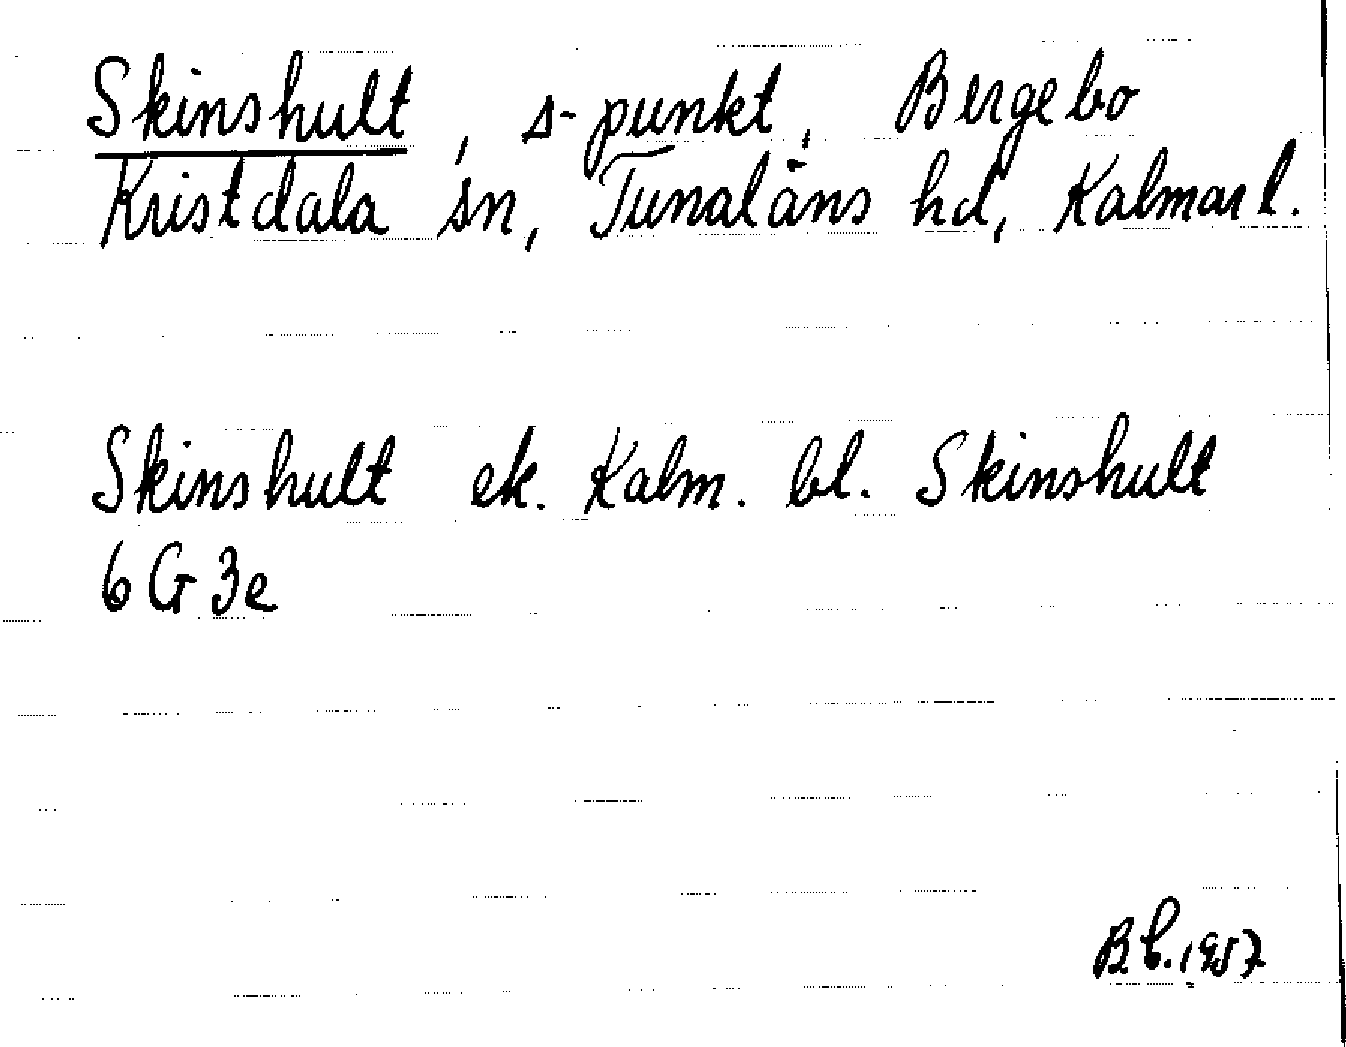 Skinshult, s-punkt, Bergebo
Kristdala sn, Tunaläns hd, Kalmar l.
Skinshult ek. Kalm. bl. Skinshult
6G3e
Bb. 1957